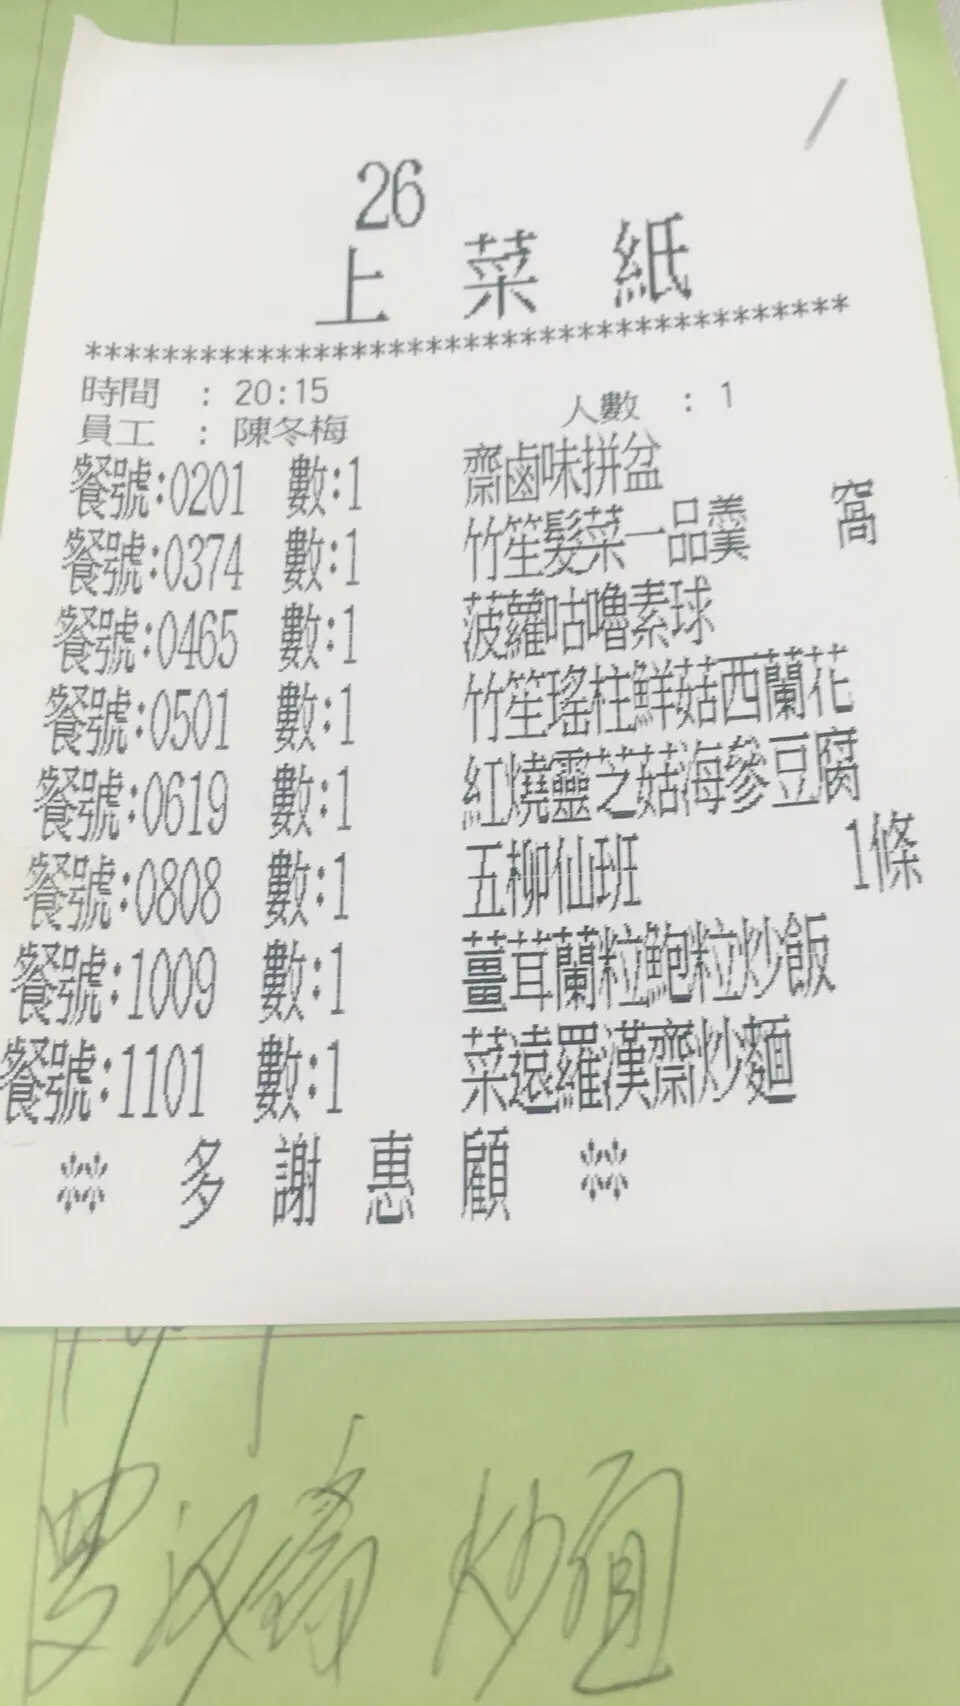 26
上菜紙
***************************************
時間 : 20:15 人數 : 1
員工 : 陳冬梅
餐號:0201 數:1 齋鹵味拼盆
餐號:0374 數:1 竹笙髮菜一品羹 窩
餐號:0465 數:1 菠蘿咕嚕素球
餐號:0501 數:1 竹笙瑤柱鮮菇西蘭花
餐號:0619 數:1 紅燒靈芝菇海參豆腐
餐號:0808 數:1 五柳仙班 1條
餐號:1009 數:1 薑茸蘭粒鮑粒炒飯
餐號:1101 數:1 菜遠羅漢齋炒麵
** 多謝惠顧 **
罗汉斋 炒面